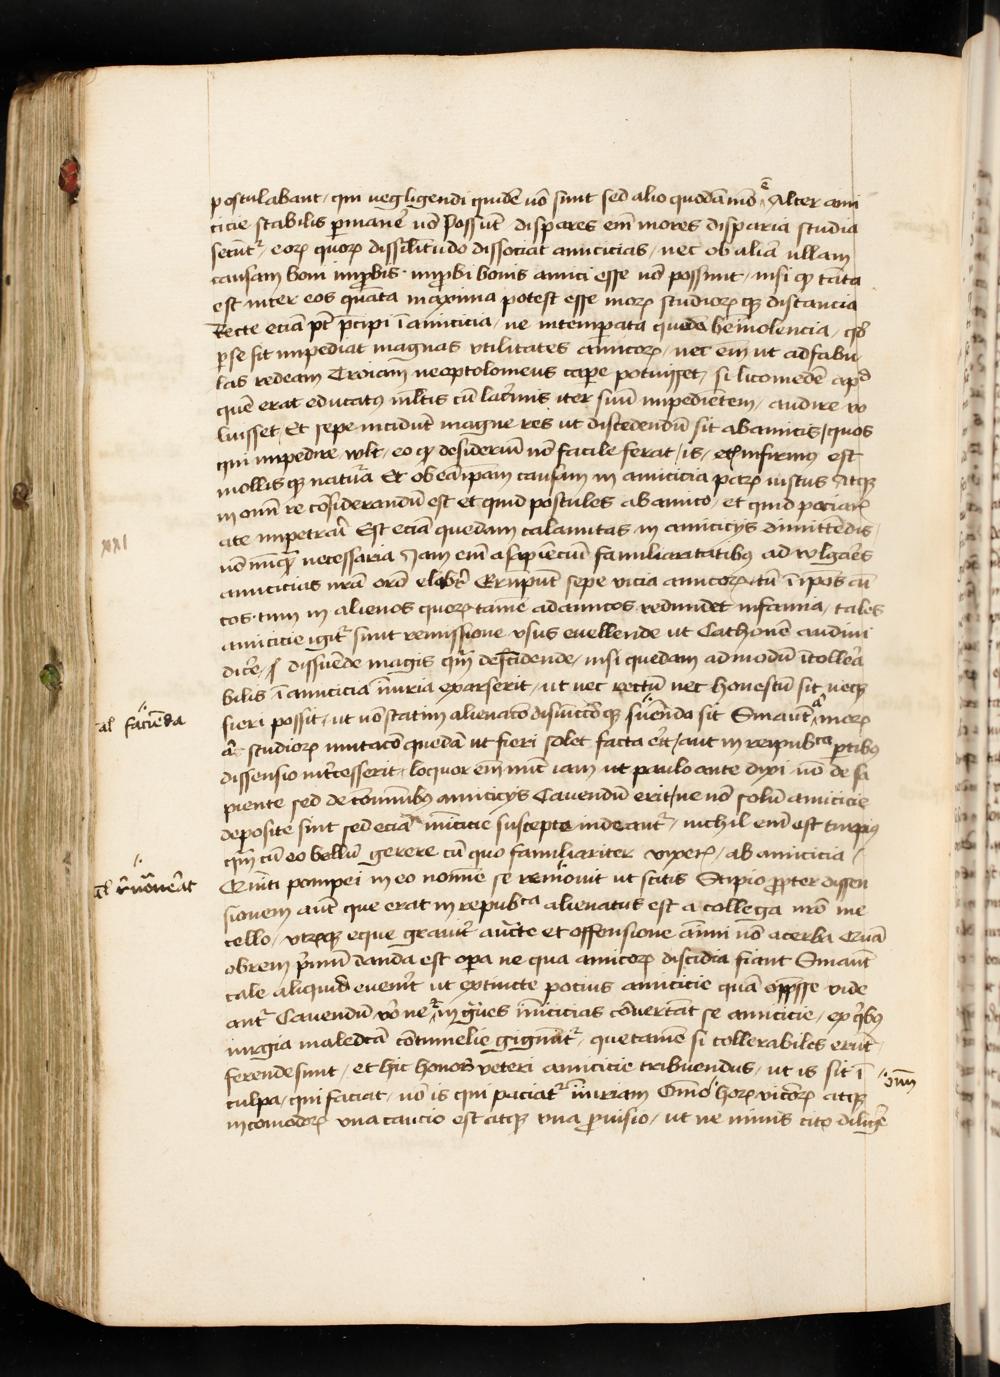 postulabant / qui negligendi quidē nō sunt sed alio quodā mō ē Alter ami
ticie stabilis ꝑmanē nō possūt dispares em̄ mores disparia studia
secūtr / eoꝝ quoꝝ dissilitudo dissociat amicicias / nec ob aliā ullam
causam boni improbis · improbi bonis amici esse nō possunt / nisi qꝫ tāta
est inter eos quāta maxima potest esse moꝝ studioꝝ qꝫ distancia
Recte eciā pt̄ p̄cipi ī amicicia / ne intemꝑata quedā beniuolencia / qd̄
ꝑse fit impediat magnas vtilitates amicoꝝ / nec em̄ ut ad fabu
las redeam Troiam neoptolomeus capere potuisset / si licomedē apd
quē erat educatus ml̄tis cū lacrimis iter suū impedientem / audire vo
luisset Et sepe incidūt magne res ut discedendū sit ab amicis / quos
qui impedire vult / eo qꝫ desideriū nō facile ferat / is / et infirmus est
mollis qꝫ natura Et ob eā ipam causam in amicicia parꝝ iustus Atqꝫ
in omī re cōsiderandū est et quid postules ab amico / et quid paciaris
a te impetrari Est eciā quedam calamitas in amicicijs dimittēdis
nō nūqꝫ necessaria Jam em̄ a sapiēciū familiaritatibus ad vlgares
amicicias nrā orō elabitr Erumpūt sepe vicia amicoꝝ tū ī ipōs ami
cos · tum in alienos quoꝝ tamē ad amicos redundet infamia / tales
amicicie igitr sunt remissione vsus euellende ut Cathonē audiui
dicē / dissuende magis qm̄ descidende / nisi quedam ad modū ītollera
bilis ī amicicia iniuria exarserit / ut nec rectū nec honestū sit neqꝫ
al faciēda
fieri possit / ut nō statim alienacō disiūctōqꝫ fuenda sit Sinautē a moꝝ
at studioꝝ mutacō quedā ut fieri solet facta erit / aut in reipubca ꝑtibus
dissensio intercesserit / loquor em̄ nūc iam ut paulo ante dixi nō de sa
piente sed de cōmunibus amicicijs Cauendū erit / ne nō solū amicicie
deposite sint sed eciā inimicicie suscepte uideantr / nichil em̄ est turpius
qm̄ cū eo bellū gerere cū quo familiariter vixeris / ab amicicia /
Quinti pompei meo nomine se remouit ut scitis Scipio ꝓpter dissen
sionem autē que erat in repubca alienatus est a collega nrō me
tello / vtrūqꝫ eque grauitr aucte et offensione animi nō acerba Quā
obrem primū danda est opera ne qua amicoꝝ discidia fiant Sinautē
tale aliquid euenerit ut extincte pocius amicicie quā oppsse vide
antr Cauendū vō ne in grues inimicicias cōuertāt se amicicie / ex qbus
iurgia maledicta cōtumelie gignūtr / que tamē si collerabiles erūt
ferende sunt / et hic honor veteri amicicie tribuendus / ut is sit ī
culpa / qui faciat / nō is qui paciatr iniuriam Omō hoꝝ vicioꝝ atqꝫ
incomodoꝝ vna caucio est atqꝫ vna ꝓuisio / ut ne nimis cito diligē